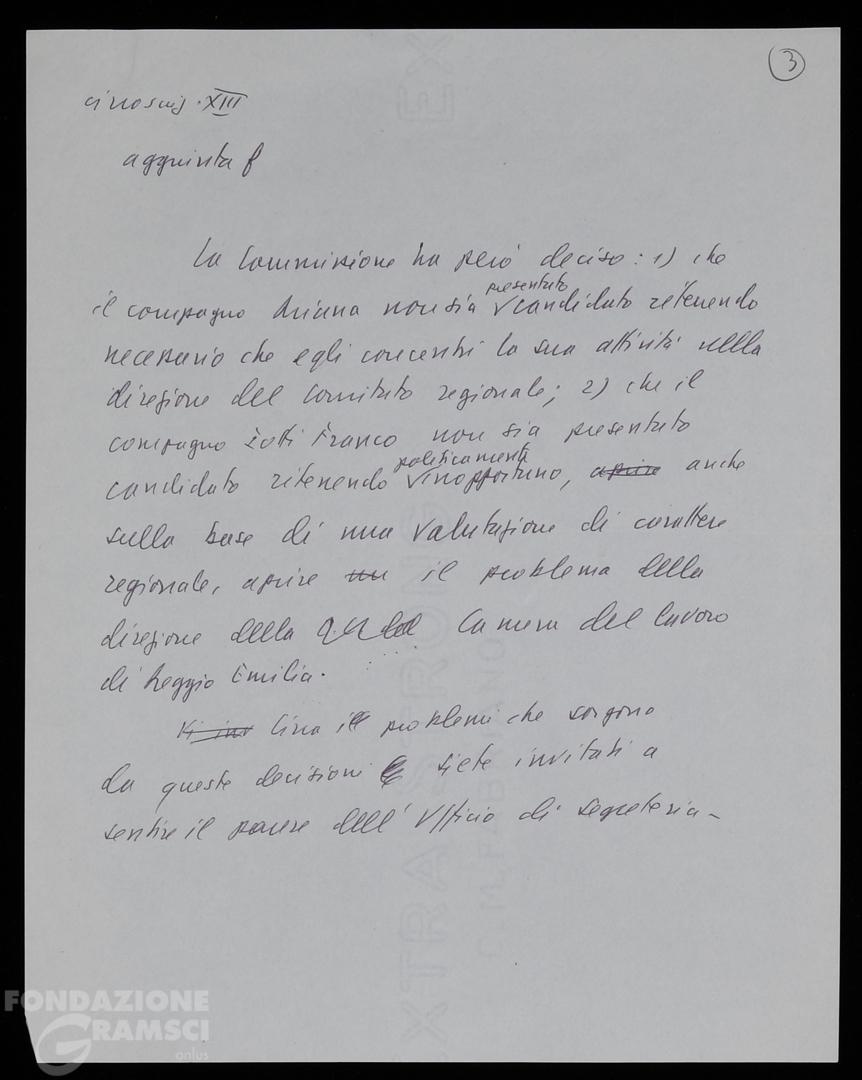 3
circoscriz. XIII
aggiunta f
La Commissione ha però deciso: 1) che
presentato
il compagno Ariana non sia candidato ritenendo
necessario che egli concentri la sua attività nella
direzione del Comitato regionale; 2) che il
compagno Zotti Franco non sia presentato
politicamente
candidato ritenendo inopportuno, aprire anche
sulla base di una valutazione di carattere
regionale, aprire un il problema della
direzione della Camera del lavoro
di Reggio Emilia.
Circa i problemi che sorgono
da queste decisioni siete invitati a
sentire il parere dell'Ufficio di segreteria -
EXTRA STRONG
C.M. FABRIANO
FONDAZIONE
GRAMSCI
onlus